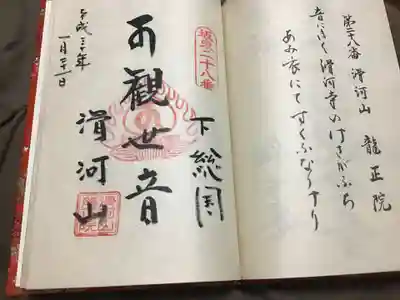 第二十八番 滑河山 龍正院
音にきく滑河寺のけさがふち
あみ衣にてすくふなりけり
坂東二十八番
下総国
観世音
滑河山
平成三十年
一月二十一日